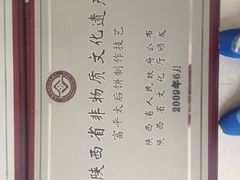 陕西省非物质文化遗产
富平太后饼制作技艺
陕西省人民政府公布
陕西省文化厅颁发
2009年6月